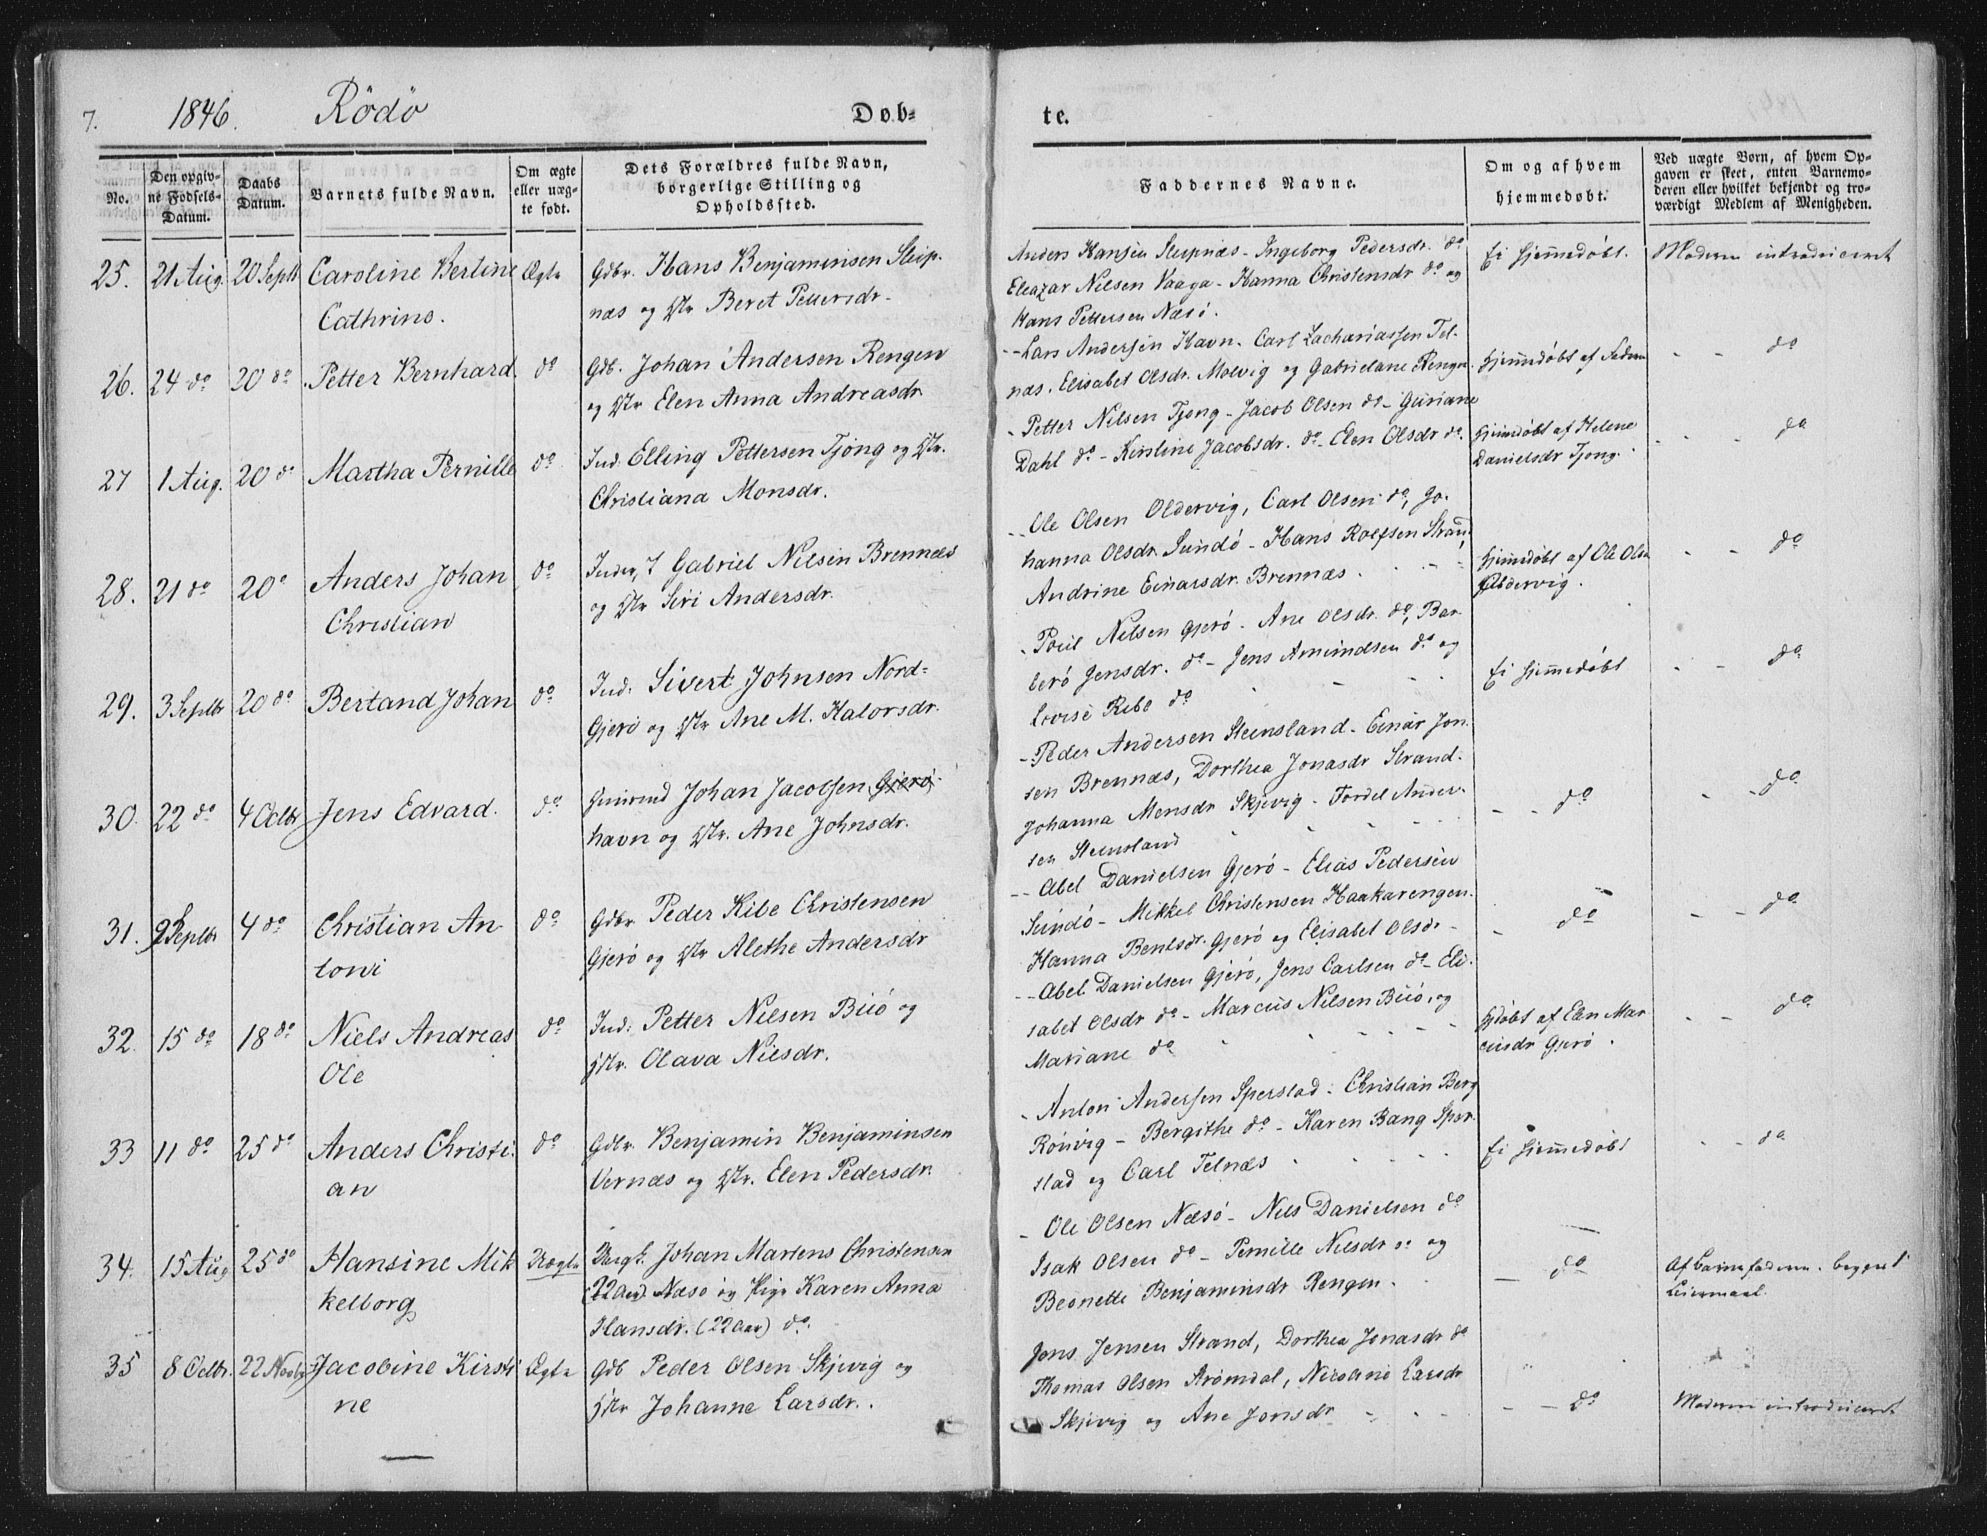 7. 1846. Rödö Dob- te.
No.
Den opgiv-
ne Fodsels-
Datum.
Daabs
Datum.
Barnets fulde Navn.
Om ægte
eller uæg-
te født.
Dets Forældres fulde Navn,
borgerlige Stilling og
Opholdssted.
Faddernes Navne.
Om og af hvem
hjemmedøbt.
Ved uægte Børn, af hvem Op-
gaven er skeet, enten Barnemo-
deren eller hvilket bekjendt og tro-
værdigt Medlem af Menigheden.
25. 21 Aug. 20 Septb Caroline Bertine Ægte Gdbr. Hans Benjaminsen Sleip-
Cathrine. næs og Hr Beret Pettersdr.
Anders Hansen Sleipnæs - Ingeborg Pedersdr. do
Eleazar Nilsen Vaaga - Hanna Christensdr do og
Hans Pettersen Næsö.
Ei hjemmedöbt. Moderen introduceret
26. 24 do 20 do Petter Bernhard. do Gdb. Johan Andersen Rengen
og Hr Elen Anna Andreasdr
Lars Andersen Havn - Carl Zachariassen Tel-
næs. Elisabet Olsdr. Molvig og Gabrielane Rengen.
Hjemmedöbt af Faderen - - do
27 1 Aug. 20 do Martha Pernille do Ind. Elling Pettersen Tjong og Hr.
Christiana Monsdr.
Petter Nilsen Tjong - Jacob Olsen do - Guriane
Dahl do - Kirstine Jacobsdr. do - Elen Olsdr do.
Hjemdöbt af Helene
Danielsdr Tjong. - - do
28. 21 do 20 do Anders Johan do Inder, I Gabriel Nilsen Brennæs
Christian og Hr Siri Andersdr.
Ole Olsen Oldervig, Carl Olsen do, Jo-
hanna Olsdr. Sundö - Hans Rolfsen Strand,
Andrine Einarsdr. Brennæs.
Hjemdöbt af Ole Olsen
Oldervig. - - do
29. 3 Septbr 20 do Bertand Johan do Ind. Sivert Johnsen Nord-
Gjerö og Hr Ane M. Halorsdr.
Poul Nilsen Gjerö - Ane Olsdr. do, Bar-
berö Jensdr. do - Jens Amundsen do og
Lovise Ribe do
Ei hjemmedöbt - - do
30. 22 do 4 Octbr Jens Edvard. do Johan Jacobsen Gjerö-
havn og Hr. Ane Johnsdr.
Peder Andersen Steensland - Einar Jon-
sen Brennæs, Dorthea Jonasdr Strand.
Johanna Monsdr Skjevig - Tordel Ander-
sen Steensland
- - do - - do
31. 9 Septbr 4 do Christian An- do Gdbr Peder Ribe Christensen
toni Gjerö og Hr Alethe Andersdr
Abel Danielsen Gjerö - Elias Pedersen
Sundö - Mikkel Christensen Haakarengen.
Hanna Bentsdr. Gjerö og Elisabet Olsdr -
- do - - do
32. 15 do 18 do Niels Andreas do Ind. Petter Nilsen Buö og
Ole Hr. Olava Nilsdr.
Abel Danielsen Gjerö, Jens Carlsen do - Eli-
sabet Olsdr do - Marcus Nilsen Buö, og
Mariane do
Hjdöbt af Elen Mar-
cusdr Gjerö. - - do
33 11 do 25 do Anders Christi- do Gdbr Benjamin Benjaminsen
an Vernæs og Hr. Elen Pedersdr.
Anton Andersen Sperstad - Christian Berg
Rönvig - Bergithe do - Karen Bang Sper-
stad og Carl Telnæs
Ei hjemmedöbt - - do
34. 15 Aug 25 do Hansine Mik Uægte Ungk. Johan Martens Christensen
kelborg (22 aar) Næsö og Pige Karen Anna
Hansdr. (22 aar) do.
Ole Olsen Næsö - Nils Danielsen do
Isak Olsen do - Pernille Nilsdr do og
Beonette Benjaminsdr Rengen.
- do Af Barnefaderen. begges 1
Leiermaal.
35 8 Octbr. 22 Novbr Jacobine Kirsti Ægte Gdb Peder Olsen Skjevig og
ne Hr Johanne Larsdr.
Jens Jensen Strand, Dorthea Jonasdr do
Thomas Olsen Strömdal, Nicoline Larsdr
Skjevig og Ane Jonsdr
- - do Moderen introduceret